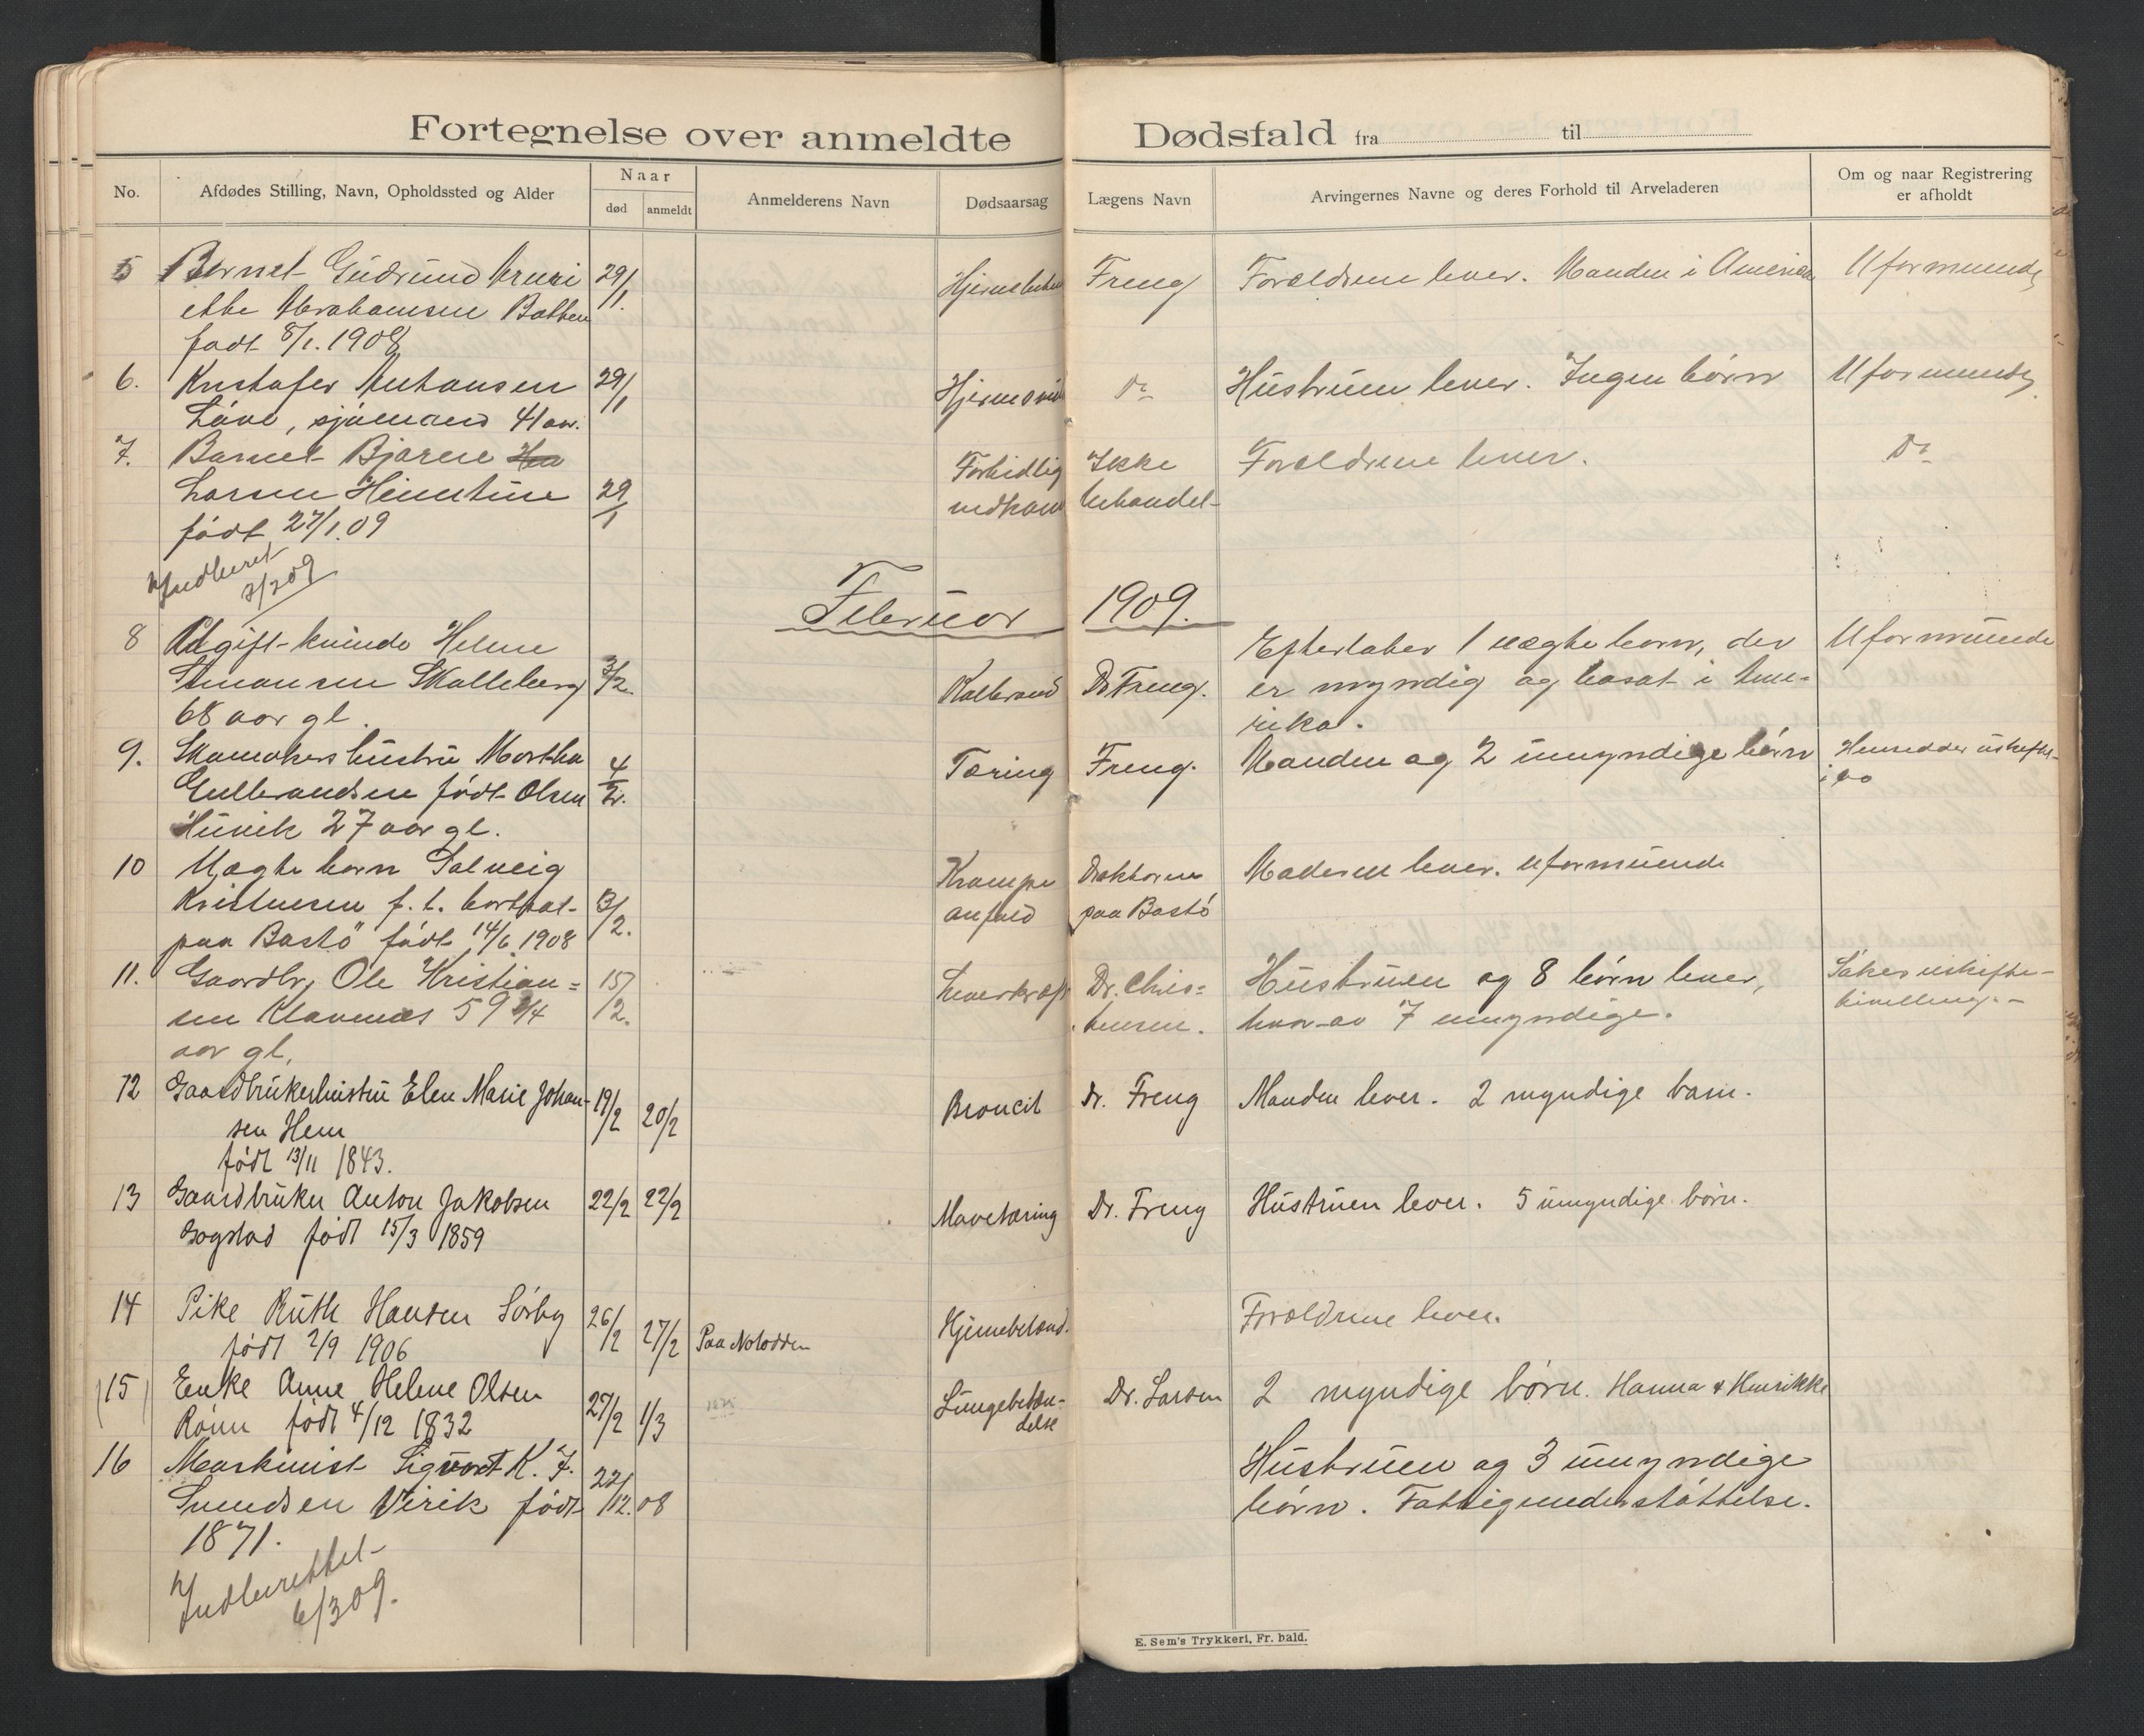 Fortegnelse over anmeldte Dødsfald fra til
No.
Afdødes Stilling, Navn, Opholdssted og Alder
Naar
død
anmeldt
Anmelderens Navn
Dødsaarsag
Lægens Navn
Arvingernes Navne og deres Forhold til Arveladeren
Om og naar Registrering
er afholdt
5 Barnet Gudrund 29/1. Freng Forældrene lever. Manden i Amerika Uformuende
Abrahamsen
født 8/1. 1908
6. Kristofer Anthonsen 29/1 Do Hustruen lever. Ingen børn Uformuende
Løve, sjømand 41 aar.
7. Barnet Bjarne Forældrene lever. Do
Larsen Himstine 29/1 Fortidlig Ikke
født 27/1.09 nedkom behandel-
Indberet
2/2 09
Februar 1909.
8 Ugift kvinde Helene Efterlater 1 uægte barn, der Uformuende
Simonsen Skalleberg 3/2. Kolbrand Dr Freng. er myndig og bosat i Ame-
68 aar gl. rika.
9. Skomakerhustru Martha 4/2. Tæring Freng. Manden og 2 umyndige børn Hensidder i uskifte-
Gulbrandsen født Olsen i bo
Huvik 27 aar gl.
10 Uægte barn Solveig Krampe Doktoren Moderen lever. uformuende
Kristensen f. t. bortsat 3/2. anfald paa Bastø
paa Bastö født 14/6 1908
11. Gaardbr, Ole Kristian= 15/2. Leverkræft Dr. Chris= Hustruen og 8 børn lever, Søker uskifte-
sen Klavenes 59 3/4 tensen. hvor-av 7 umyndige. bevilling.-
aar gl.
12 Gaardbrukerhustru Elen Marie Johan- 19/2 20/2 Broncit Dr. Freng Manden lever. 2 myndige barn.
sen Hem
født 13/11 1843.
13 Gaardbruker Anton Jakobsen 22/2 22/2 Mavetæring Dr. Freng Hustruen lever. 5 umyndige børn.
Gogstad født 15/3 1859
14 Pike Ruth Hansen Sørby 26/2 27/2 Paa Notodden Hjernebetænd. Forældrene lever.
født 2/9 1906
15 Enke Anne Helene Olsen 27/2 1/3 Lungebetæn- Dr. Larsen 2 myndige børn. Hanna & Henrikke
Rønn født 4/12 1832 delse
16 Maskinist Sigvart K. F. 22/12. 08 Hustruen og 3 umyndige
Svendsen Virik født børn. Fattigunderstøttelse.
1871.
Indberettet
6/3 09.
E. Sem's Trykkeri, Fr. hald.